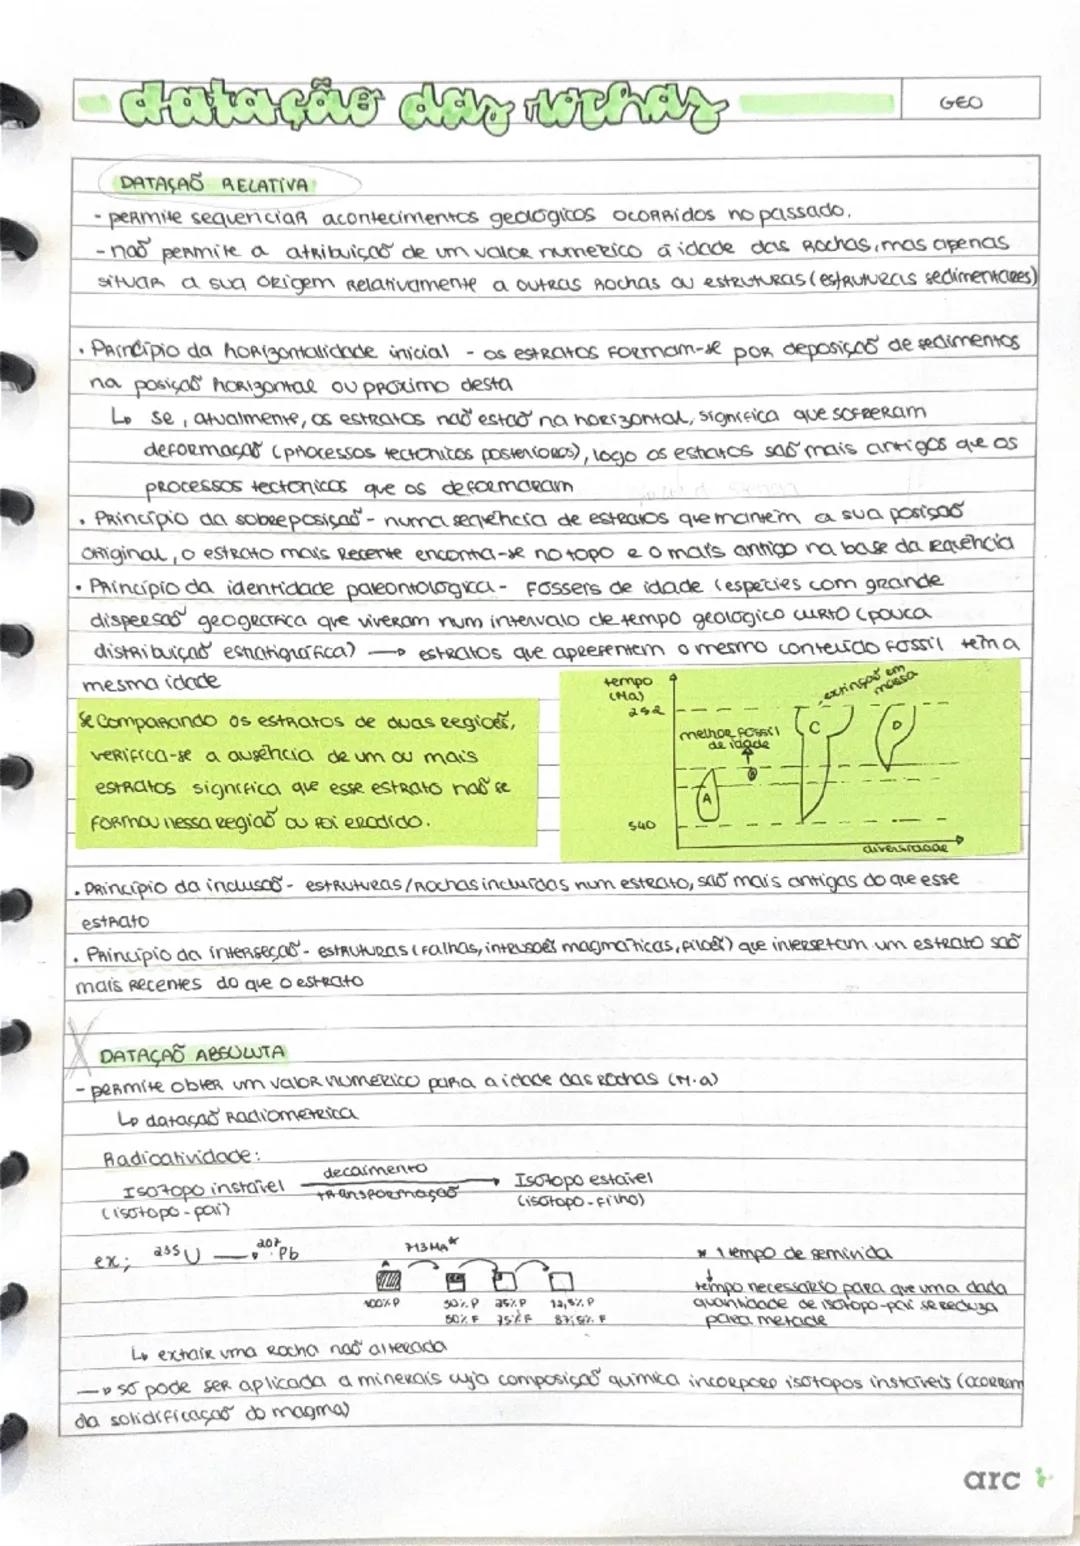 datação das rochas
GEO
DATAÇAÕ RELATIVA
- permite sequenciar acontecimentos geologicos ocorridos no passado.
- naõ permite a atribuiçaõ de um valor numerico á idade das rochas, mas apenas
situar a sua origem relativamente a outras rochas ou estruturas (estruturas sedimentares)
. Princípio da horizontalidade inicial - os estratos formam-se por deposiçaõ de sedimentos
na posiçaõ horizontal ou próximo desta
↳ se, atualmente, os estratos naõ estaõ na horizontal, significa que sofreram
deformaçaõ (processos tectonicos posteriores), logo os estratos saõ mais antigos que os
processos tectonicos que os deformaram
. Princípio da sobreposiçaõ - numa sequência de estratos que mantêm a sua posiçaõ
original, o estrato mais recente encontra-se no topo e o mais antigo na base da sequência
. Princípio da identidade paleontologica - Fosseis de idade (espécies com grande
dispersaõ geografica que viveram num intervalo de tempo geologico curto (pouca
distribuiçaõ estratigrafica) → estratos que apresentem o mesmo conteúdo fossil têm a
mesma idade
Se Comparando os estratos de duas regioẽs,
verifica-se a ausência de um ou mais
estratos significa que esse estrato naõ se
formou nessa regiaõ ou foi erodido.
tempo
(Ma)
252
540
melhor fossil
de idade
extinçaõ em
massa
A
B
C
D
diversidade
. Princípio da inclusaõ - estruturas/rochas incluídas num estrato, saõ mais antigas do que esse
estrato
. Princípio da interseçaõ - estruturas (falhas, intrusoẽs magmáticas, filoẽs) que intersetam um estrato saõ
mais recentes do que o estrato
DATAÇAÕ ABSOLUTA
- permite obter um valor numerico para a idade das rochas (M.a)
↳ dataçaõ Radiometrica
Radioatividade:
Isotopo instável
(isotopo-pai)
decaimento
transformaçaõ
→ Isotopo estável
(isotopo-filho)
ex: 235 U → 207 Pb
713 MA*
100% P
50% P 25% P 12,5% P
50% F 75% F 87,5% F
* Tempo de semivida
↓
tempo necessário para que uma dada
quantidade de isotopo-pai se reduza
para metade
↳ extrair uma rocha naõ alterada
→ só pode ser aplicada a minerais cuja composiçaõ química incorpore isotopos instáveis (ocorrem
da solidificaçaõ do magma)
arc